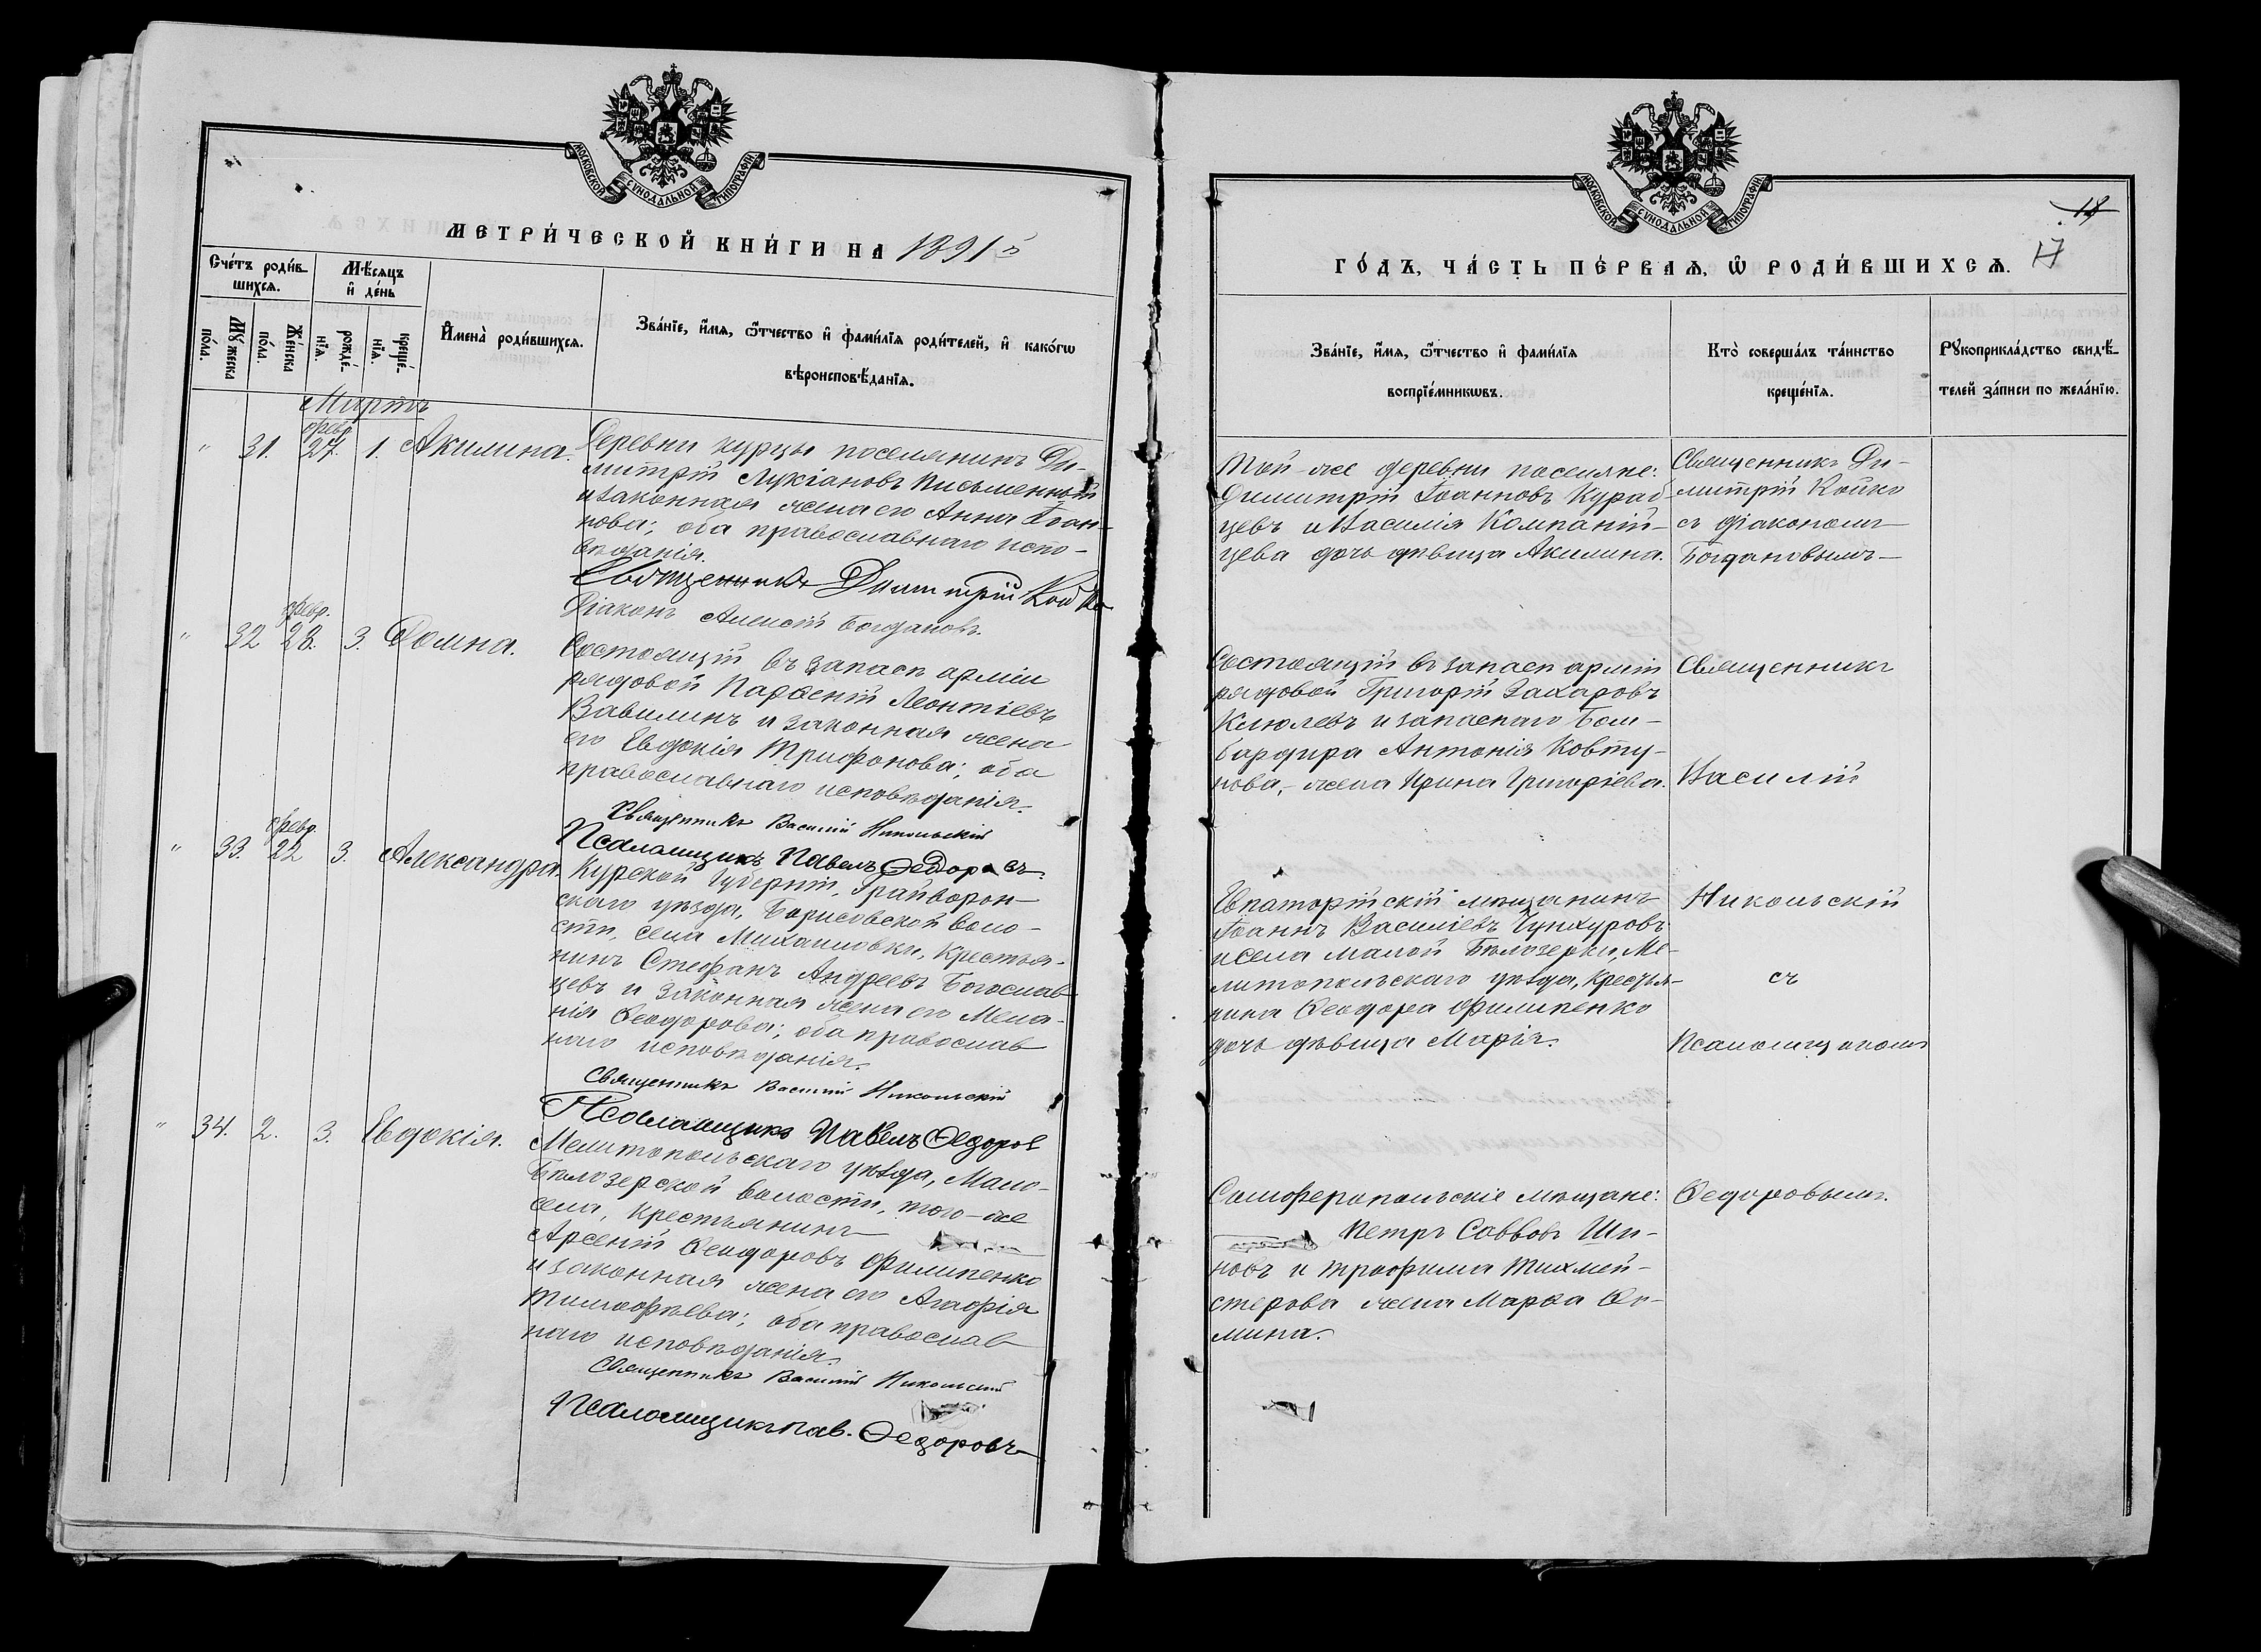 МОСКОВСКОЙ СѴНОДАЛЬНОЙ ТИПОГРАФІИ
МЕТРИ́ЧЕСКОЙ КНИ́ГИ НА 1891 й
Сче́тъ роди́в-
шихсѧ.
Мѣ́сѧцъ
и҆ де́нь
Мꙋ́жеска
по́ла.
Же́нска
по́ла.
рожде́-
нїѧ.
креще́-
нїѧ.
И҆мена̀ роди́вшихсѧ.
Зва́нїе, и҆́мѧ, ѻ҆́тчество и҆ фами́лїѧ роди́телей, и҆ како́гѡ
вѣроисповѣ́данїѧ.
Мартъ
" 31. февр. 27. 1. Акилина.
Деревни Курцы поселянинъ Ди-
митрій Лукіановъ Письменный
и законная жена его Анна Іоан-
нова; оба православнаго испо-
вѣданія.
Священникъ Димитрій Койко
Діаконъ Алексій Богдановъ.
" 32 февр. 28. 3. Домна.
Состоящій въ запасѣ арміи
рядовой Парѳеній Леонтіевъ
Вавилинъ и законная жена
его Евдокія Трифонова; оба
православнаго исповѣданія.
Священникъ Василій Никольскій
Псаломщикъ Павелъ Ѳедоровъ.
" 33. февр. 22 3. Александра.
Курской губерніи, Грайворон-
скаго уѣзда, Борисовской воло-
сти, села Михаиловки, крестья-
нинъ Стефанъ Андреевъ Богослав-
цевъ и законная жена его Мела-
нія Ѳеодорова; оба православ
наго исповѣданія.
Священникъ Василій Никольскій
Псаломщикъ Павелъ Ѳедоров
" 34. 2. 3. Евдокія.
Мелитопольскаго уѣзда, Мало-
Бѣлозерской волости, того-же
села, крестьянинъ
Арсеній Ѳеодоровъ Филипенко
и законная жена его Агафія
Тимофѣева; оба православ
наго исповѣданія.
Священникъ Василій Никольскій
Псаломщикъ Пав. Ѳедоровъ
МОСКОВСКОЙ СѴНОДАЛЬНОЙ ТИПОГРАФІИ
18
17
ГО́ДЪ, ЧА́СТЬ ПЕ́РВАѦ, Ѽ РОДИ́ВШИХСѦ.
Зва́нїе, и҆́мѧ, ѻ҆́тчество и҆ фами́лїѧ
воспрїе́мникѡвъ.
Кто̀ соверша́лъ та́инство
креще́нїѧ.
Рꙋкоприкла́дство свидѣ́-
телей за́писи по жела́нїю.
Той-же деревни поселяне:
Димитрій Іоанновъ Кураб-
цевъ и Василія Компаній-
цева дочь дѣвица Акилина.
Священникъ Ди-
митрій Койко
съ діакономъ
Богдановымъ
Состоящій въ запасѣ арміи
рядовой Григорій Захаровъ
Кіюлевъ и запаснаго Бом-
бардира Антонія Ковту-
нова, жена Ирина Григоріева.
Священникъ
Василій
Евпаторійскій мѣщанинъ
Іоаннъ Василіевъ Чунхуровъ
и села Малой Бѣлозерки, Ме-
литопольскаго уѣзда, крестья-
нина Ѳеодора Филипенко
дочь дѣвица Марія.
Никольскій
съ
Псаломщикомъ
Симферопольскіе мѣщане:
Петръ Саввовъ Ши-
новъ и Трофима Тихмей-
стерова жена Марѳа Ѳо-
мина.
Ѳедоровымъ.